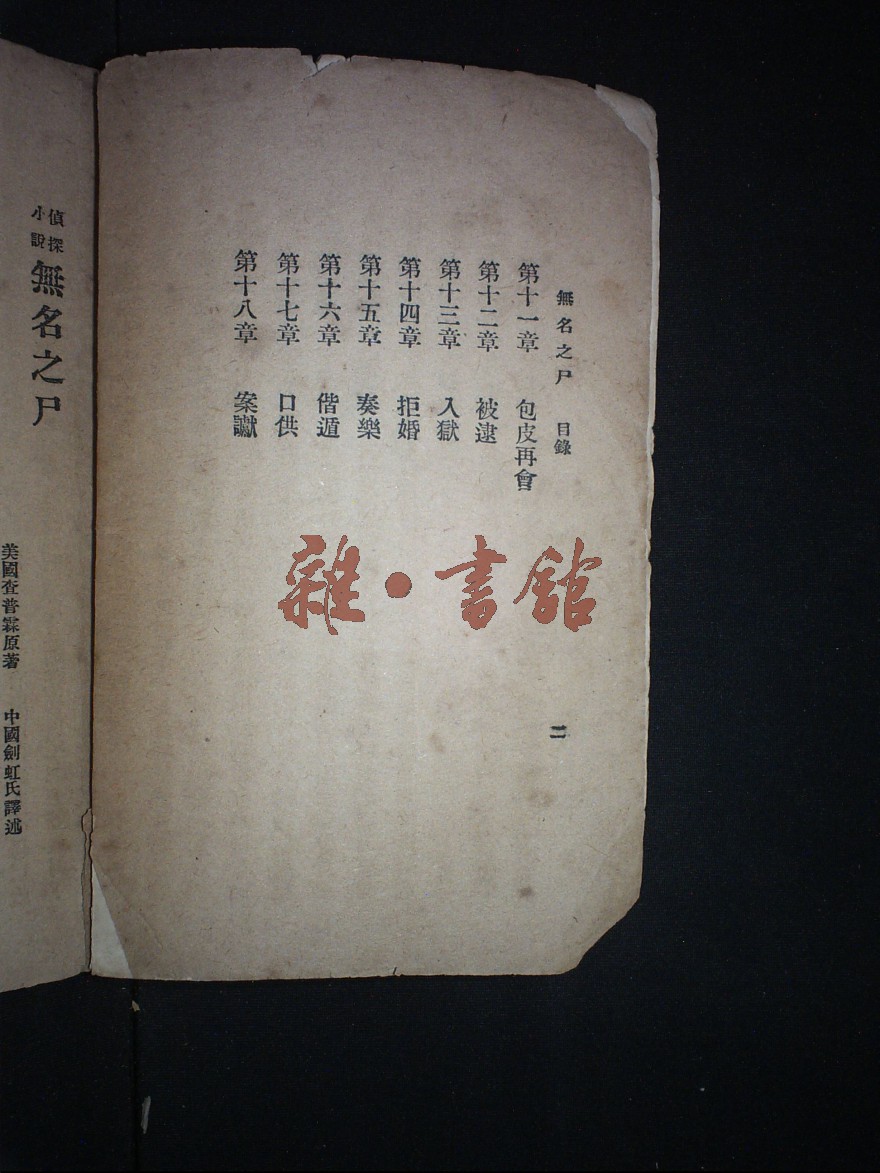 無名之尸 目錄
第十一章 包皮再會
第十二章 被逮
第十三章 入獄
第十四章 拒婚
第十五章 奏樂
第十六章 偕遁
第十七章 口供
第十八章 案讞
二
雜·書館
偵探小說 無名之尸
美國查普霖原著 中國劍虹氏譯述